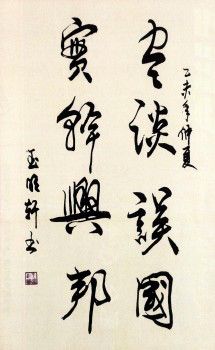 乙未年仲夏
空談誤國
實幹興邦
孟明軒書